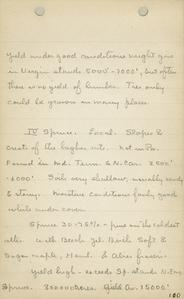 Yield under good conditions might give
in Virgin stands 5000' - 7000', but often
there is no yield of lumber. Tree only
could be grown in many places.
IV Spruce. Local. Slopes &
crest of the highest mts. Not in Pa.
Found in Md. Tenn. & N. Car. 2500'
- 6000'. Soil very shallow, usually rocky
& stony. Moisture conditions fairly good
while under cover.
Spruce 30-75% - pure on the coldest
alt. with Beech Yel. Birch Soft &
Sugar maple, Heml. & Abies fraseri.
Yield high - exceeds Sp. stands N. Eng.
Spruce. Yield Av. 15000'.
100